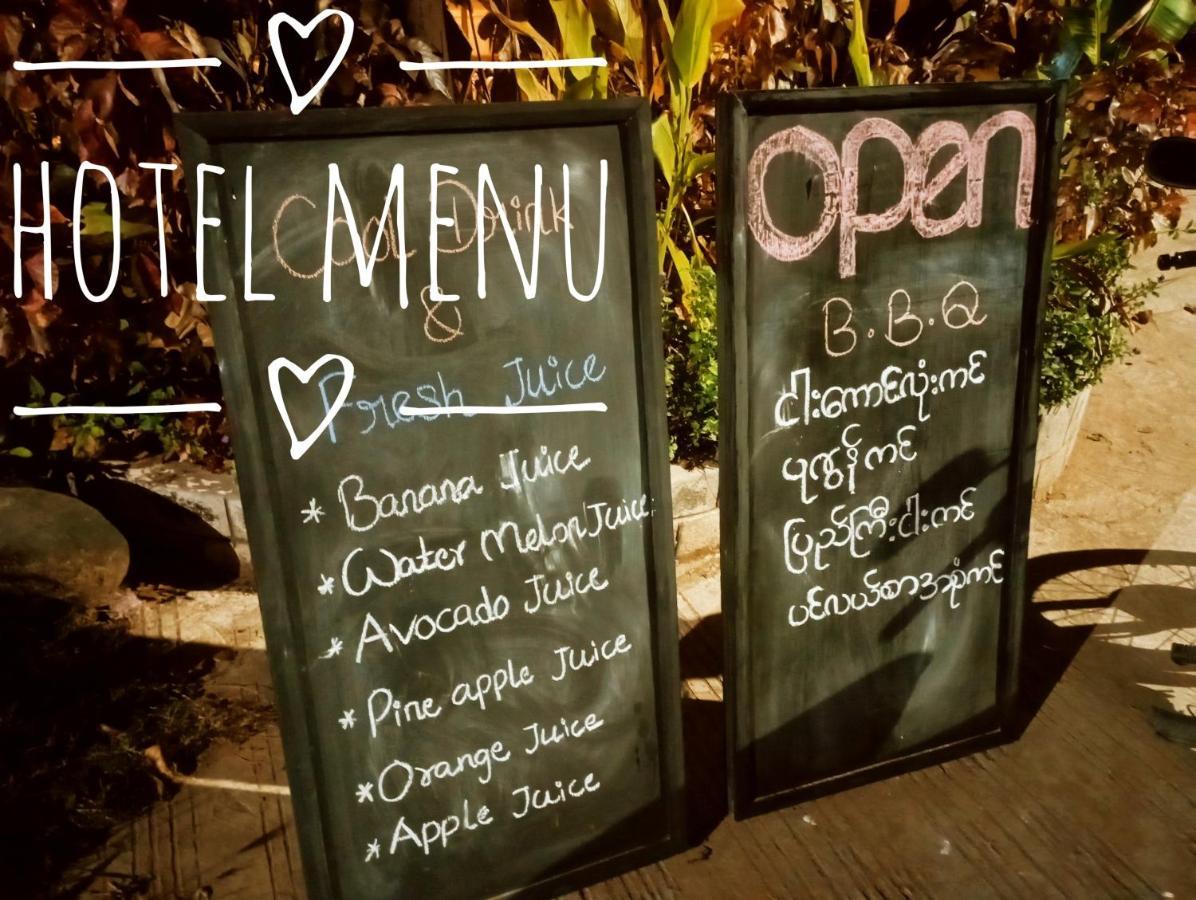 HOTEL MENU
Cool Drink
&
Fresh Juice
* Banana Juice
* Water Melon Juice
* Avocado Juice
* Pine apple Juice
* Orange Juice
* Apple Juice
Open
B.B.Q
ငါးကောင်လုံးကင်
ပုဇွန်ကင်
ပြည်ကြီးငါးကင်
ပင်လယ်စာအစုံကင်